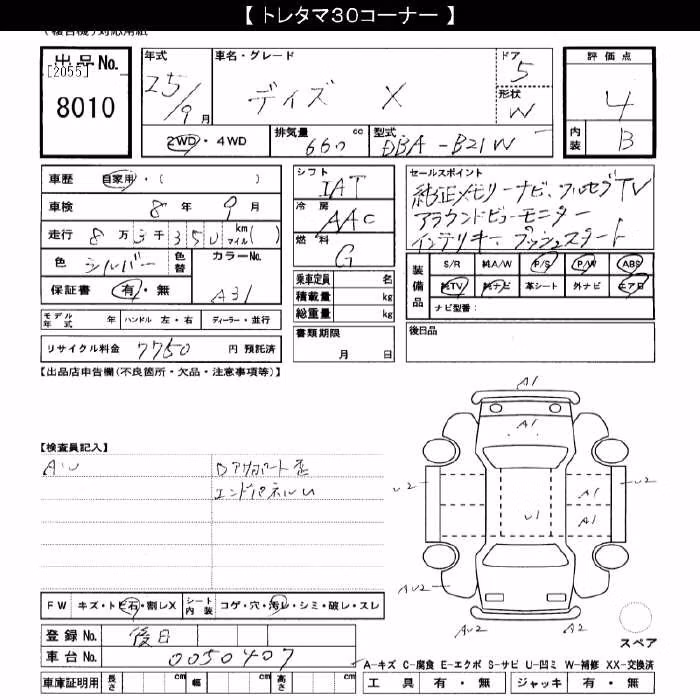 【 トレタマ30コーナー 】
(複合機)対応用紙
出品No.
[2055]
8010
年式 25/9月
車名・グレード デイズ X
ドア 5
形状 W
評価点 4
内装 B
2WD・4WD
排気量 660 cc
型式 DBA-B21W
車歴 自家用・( )
車検 8年 9月
走行 8万3千350 km マイル( )
色 シルバー 色替
カラーNo. A31
保証書 有・無
モデル年式 年 ハンドル 左・右 ディーラー・並行
リサイクル料金 7750 円 預託済
シフト IAT
冷房 AAC
燃料 G
乗車定員 名
積載量 kg
総重量 kg
書類期限
月 日
セールスポイント
純正メモリーナビ、フルセグTV
アラウンドビューモニター
インテリキー、プッシュスタート
装備品
S/R 純A/W P/S P/W ABS
純TV 純ナビ 革シート 外ナビ エアB
ナビ型番:
後日品
【出品店申告欄(不良箇所・欠品・注意事項等)】
【検査員記入】
A・U
エンドパネルU
A1
A
U2
U2
A1
A1
U1
AU2
AU2
A2
FW キズ・トビ石・割レX
シート内装 コゲ・穴・汚レ・シミ・破レ・スレ
登録No. 後日
車台No. 0050407
車庫証明用 長さ cm 幅 cm 高さ cm
スペア
A-キズ C-腐食 E-エクボ S-サビ U-凹ミ W-補修 XX-交換済
工具 有・無 ジャッキ 有・無